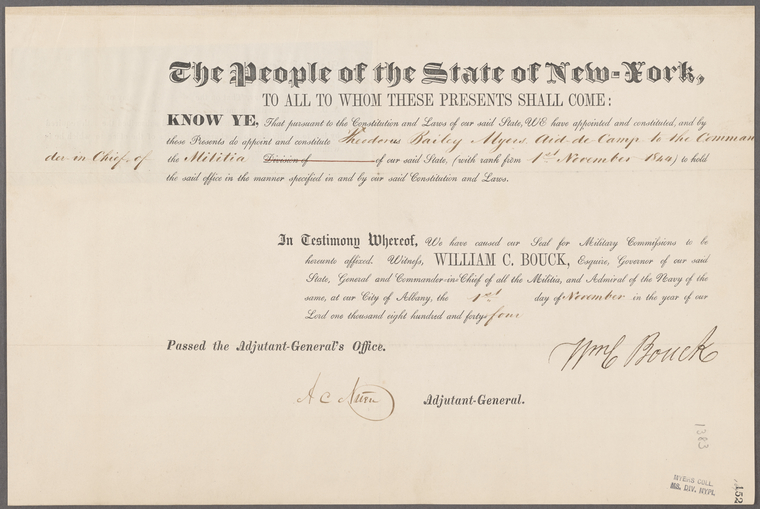 The People of the State of New-York,
TO ALL TO WHOM THESE PRESENTS SHALL COME:
KNOW YE, That pursuant to the Constitution and Laws of our said State, WE have appointed and constituted, and by
these Presents do appoint and constitute Theodorus Bailey Myers Aid-de-Camp to the Comman
der in Chief of the Militia Division of of our said State, (with rank from 1st November 1844) to hold
the said office in the manner specified in and by our said Constitution and Laws.
In Testimony Whereof, We have caused our Seal for Military Commissions to be
hereunto affixed. Witness, WILLIAM C. BOUCK, Esquire, Governor of our said
State, General and Commander-in-Chief of all the Militia, and Admiral of the Navy of the
same, at our City of Albany, the 1st day of November in the year of our
Lord one thousand eight hundred and forty-four
Passed the Adjutant-General's Office.
Wm C Bouck
A C Adjutant-General.
1383
MYERS COLL.
MS. DIV. NYPL.
152